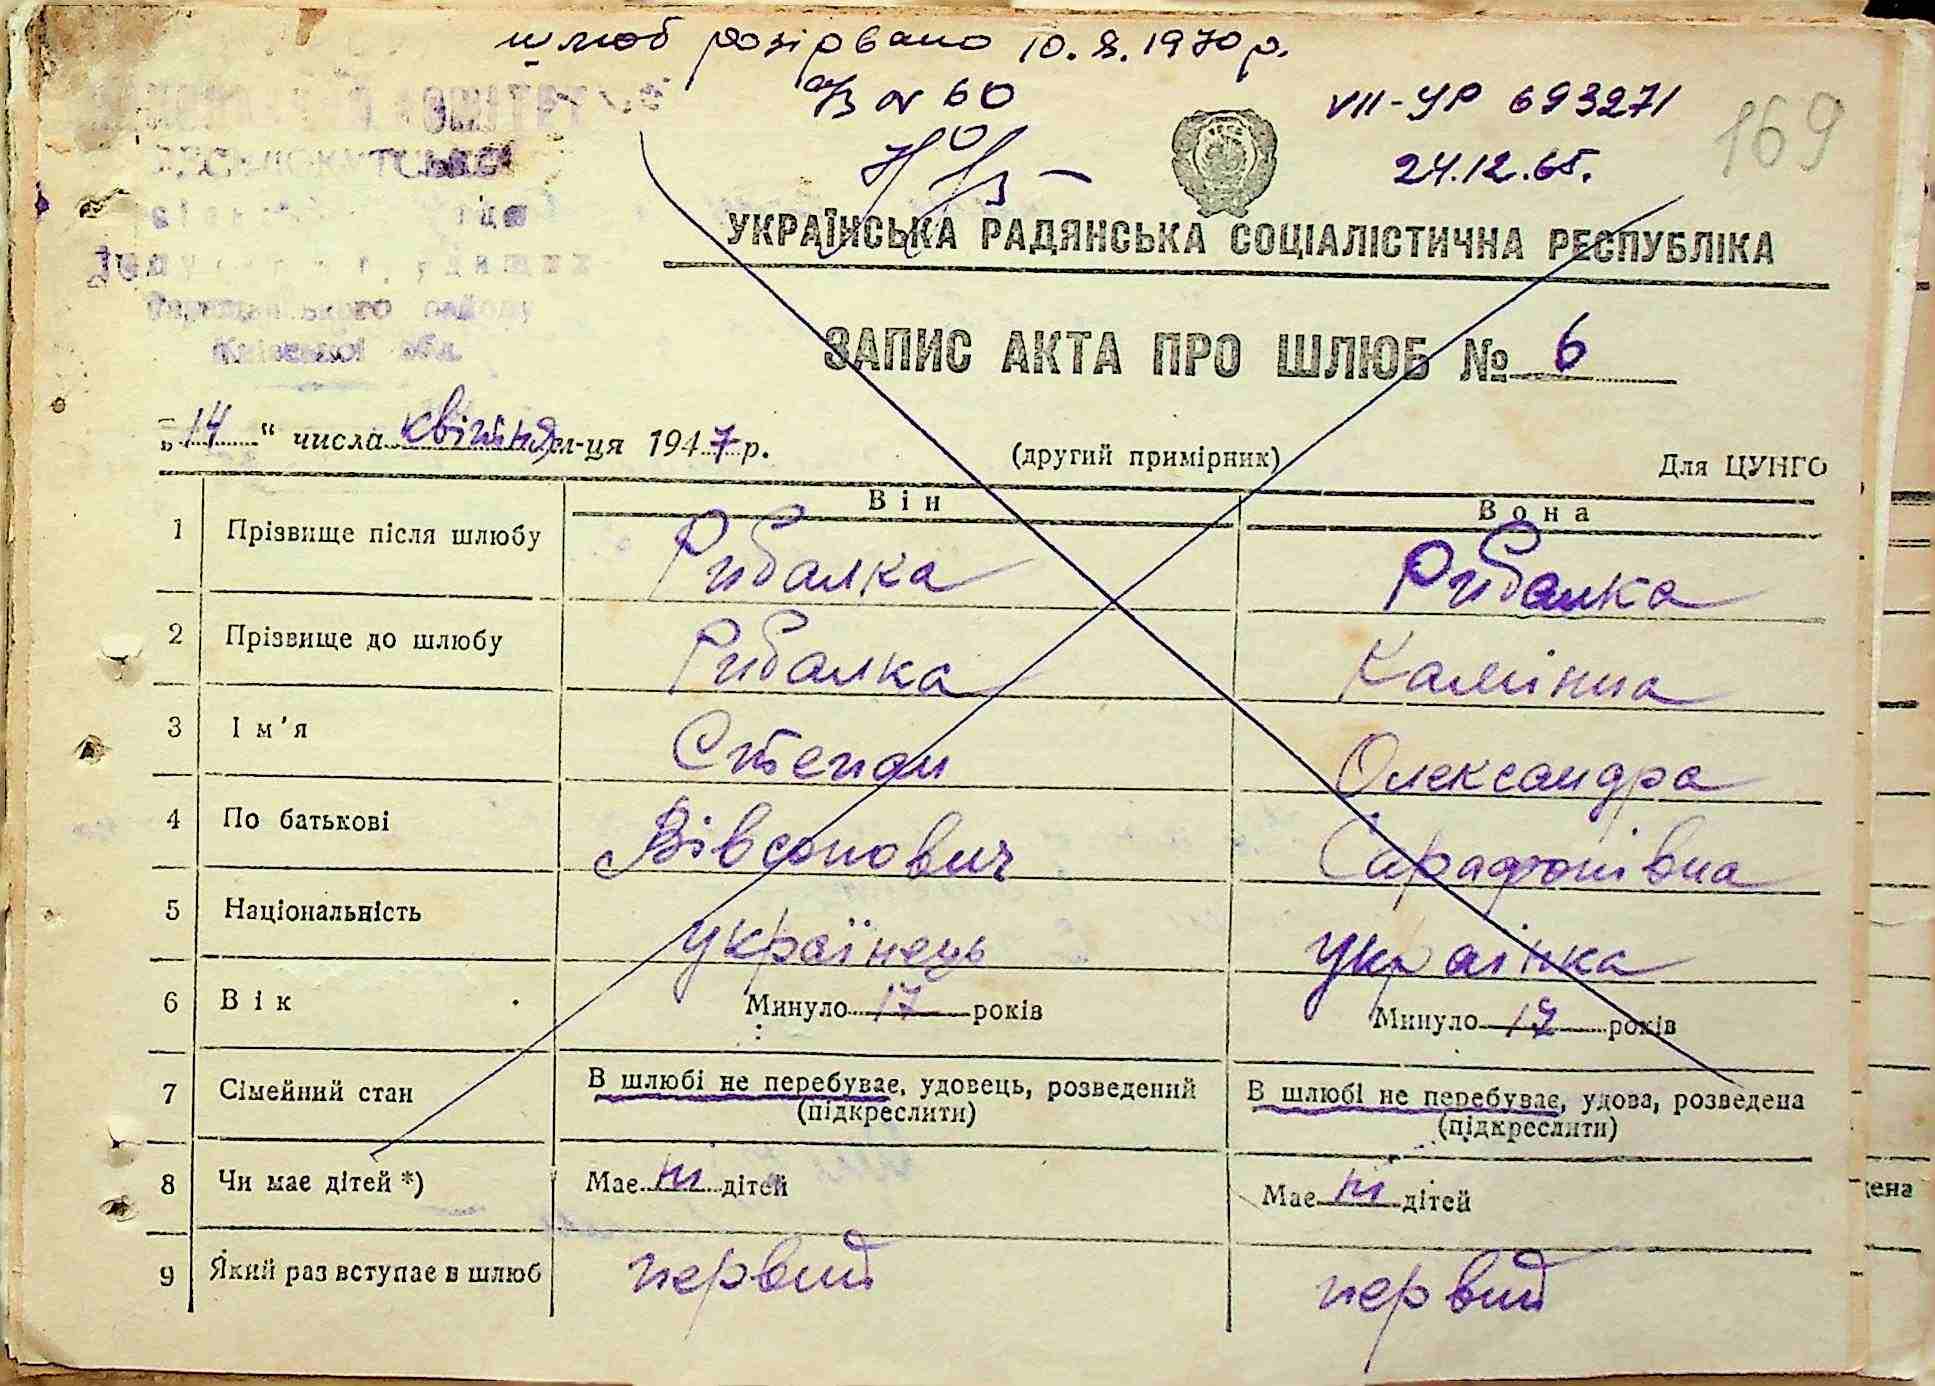 шлюб розірвано 10.8.1970 р.
а/з № 60
VII-УР 693271
169
24.12.65.
КОМІТЕТ
району
обл.
УКРАЇНСЬКА РАДЯНСЬКА СОЦІАЛІСТИЧНА РЕСПУБЛІКА
ЗАПИС АКТА ПРО ШЛЮБ № 6
„14“ числа квітня м-ця 1947 р.
(другий примірник)
Для ЦУНГО
Він Вона
1 Прізвище після шлюбу Рибалка Рибалка
2 Прізвище до шлюбу Рибалка Калініна
3 Ім'я Степан Олександра
4 По батькові Вівсонович Сарафонівна
5 Національність українець українка
6 Вік Минуло 17 років Минуло років
7 Сімейний стан В шлюбі не перебуває, удовець, розведений В шлюбі не перебуває, удова, розведена
(підкреслити) (підкреслити)
8 Чи має дітей *) Має ні дітей Має ні дітей
9 Який раз вступає в шлюб первий первий
ена